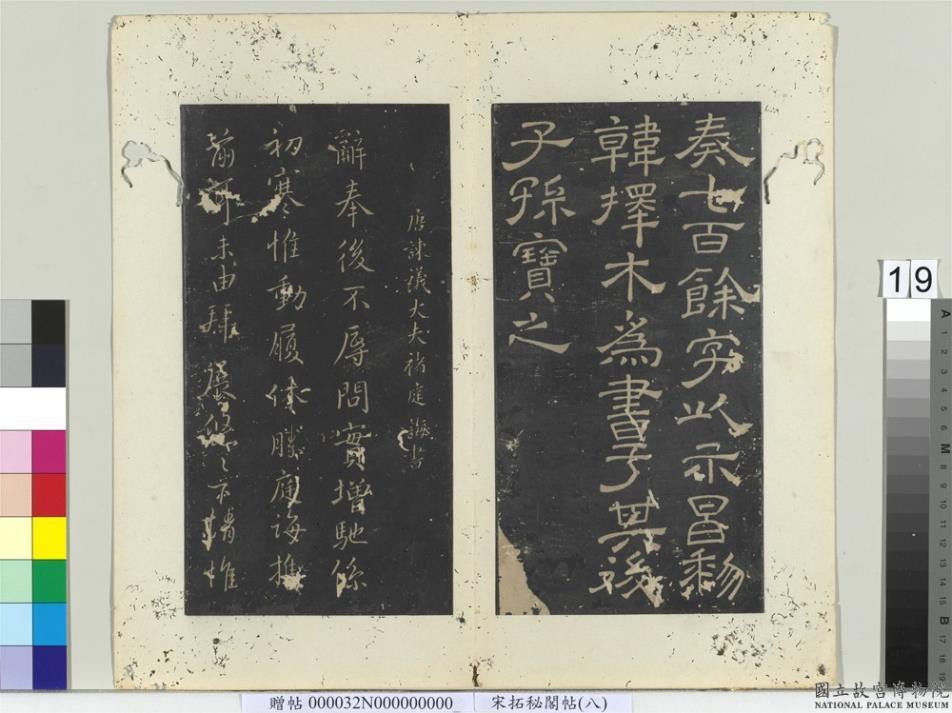 奏七百餘字以示昌黎
韓擇木為書子其後
子孫寶之
唐諫議大夫褚庭誨書
辭奉後不辱問實增馳係
初寒惟動履休勝庭誨推
前
未由拜
惟
19
A
1
2
3
4
5
6
M
8
9
10
11
12
13
14
15
B
17
18
19
贈帖 000032N000000000
宋拓秘閣帖(八)
國立故宮博物院
NATIONAL PALACE MUSEUM